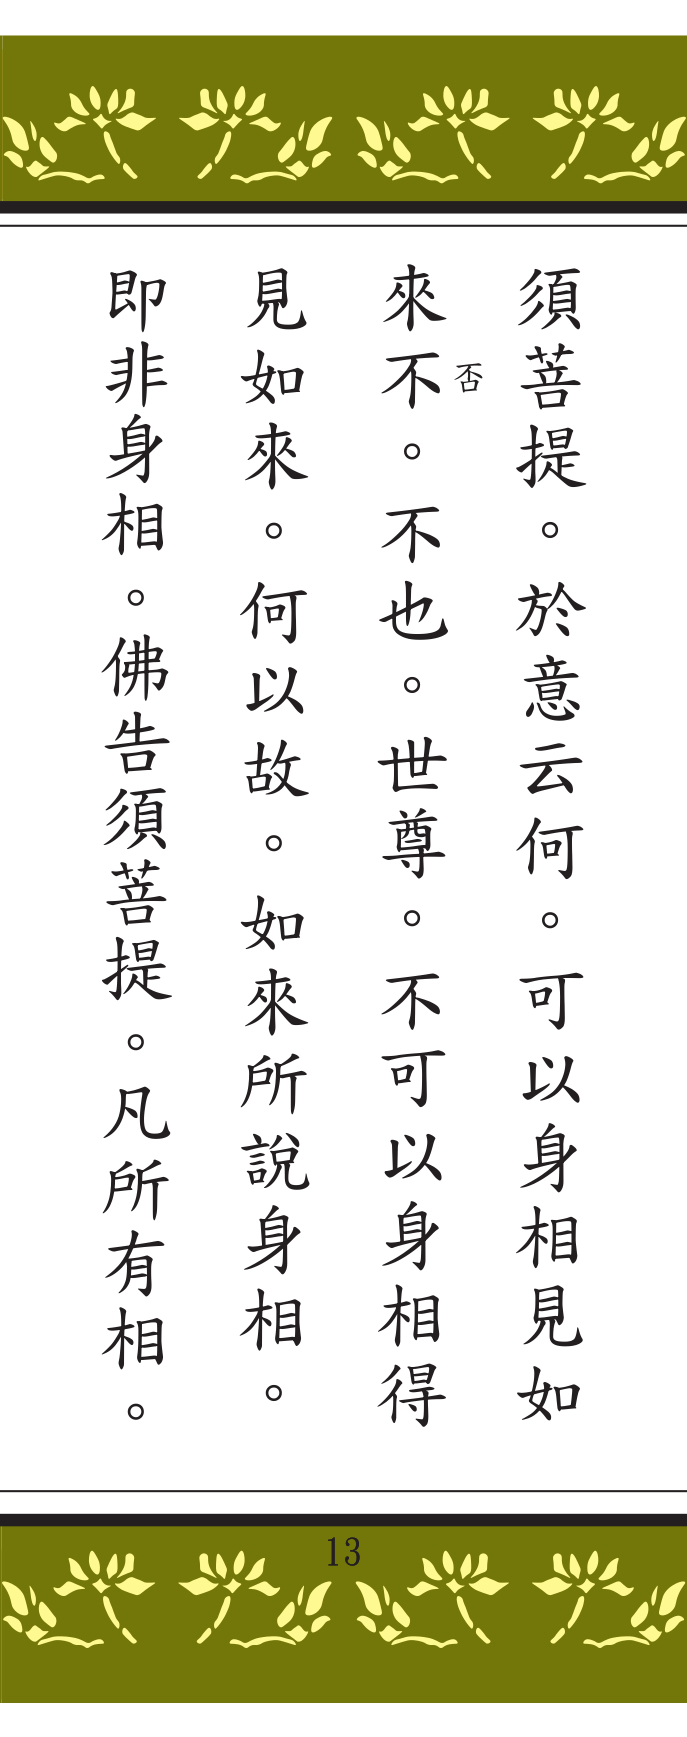 須菩提。於意云何。可以身相見如
來不。不也。世尊。不可以身相得
否
見如來。何以故。如來所說身相。
即非身相。佛告須菩提。凡所有相。
13